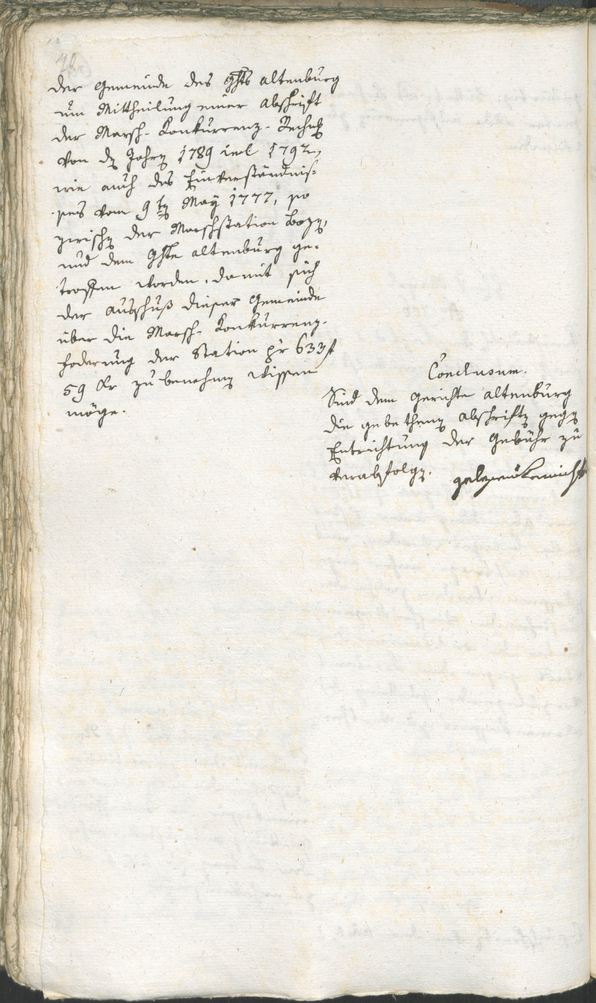 der Gemeinde des Ghts Altenburg
um Mittheilung einer Abschrift
der Marsch-Konkurrenz-Rechnug
von dz Jahrn 1789 incl 1792,
wie auch des Einverständnis-
ses vom 9tn May 1777, so
zwischn der Marschstation Bozn,
und dem Ghte Altenburg ge-
troffen worden, damit sich
der Ausschuß dieser Gemeinde
über die Marsch-Konkurrenz-
foderung der Station pr 633 f
59 Kr zu benehmen wissen
möge.
Conclusum.
Sind dem Gerichte Altenburg
die gebethenen Abschriftn gegn
Entrichtung der Gebühr zu
verabfolgn.